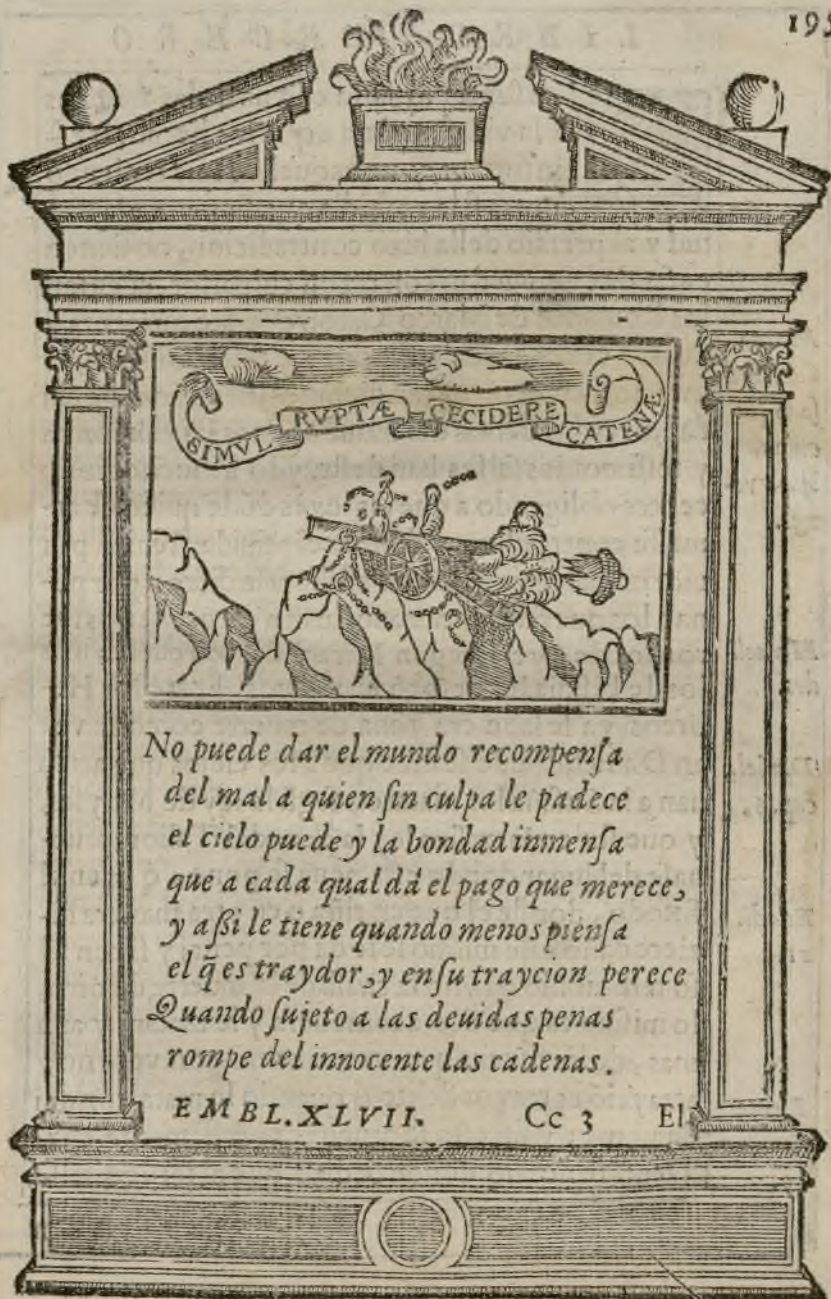 195
SIMVL RVPTÆ CECIDERE CATENÆ
No puede dar el mundo recompenſa
del mal a quien ſin culpa le padece
el cielo puede y la bondad inmenſa
que a cada qual dá el pago que merece,
y aßi le tiene quando menos pienſa
el q̃ es traydor, y en ſu traycion perece
Quando ſujeto a las deuidas penas
rompe del innocente las cadenas.
EMBL. XLVII. Cc 3 El